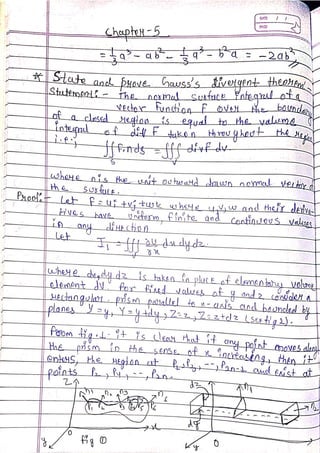 Chapter-5
= 1/3 a³ - ab² - 1/3 a³ - b²a = -2ab²
* State and prove Gauss's Divergent theorem
Statement:- The normal surface integral of a
vector function F over the boundary
of a closed region is equal to the volume
integral of div F taken throughout the
i.e;
∬ F.n ds = ∭ div F dv
S V
where n is the unit outward drawn normal vector
the surface.
Proof:- Let F = ui + vj + wk where u,v,w and their deriva-
tives have uniform, finite and continuous values
in any direction
Let I₁ = ∭ ∂u/∂x dx dy dz
where dx dy dz is taken in place of elementary volume
element dV for fixed values of y and z consider a
rectangular prism parallel to x-axis and bounded by
planes Y=y, Y=y+dy, Z=z, Z=z+dz (see fig 2).
From fig. 1 it is clear that if any point moves along
the prism in the sense of x increasing, then it
enters, the region at P₁, P₃, ... P₂n-1 and exist at
points P₂, P₄, ... P₂n.
Z n₁ dz n₁
dy
0 x 0
y fig ① y